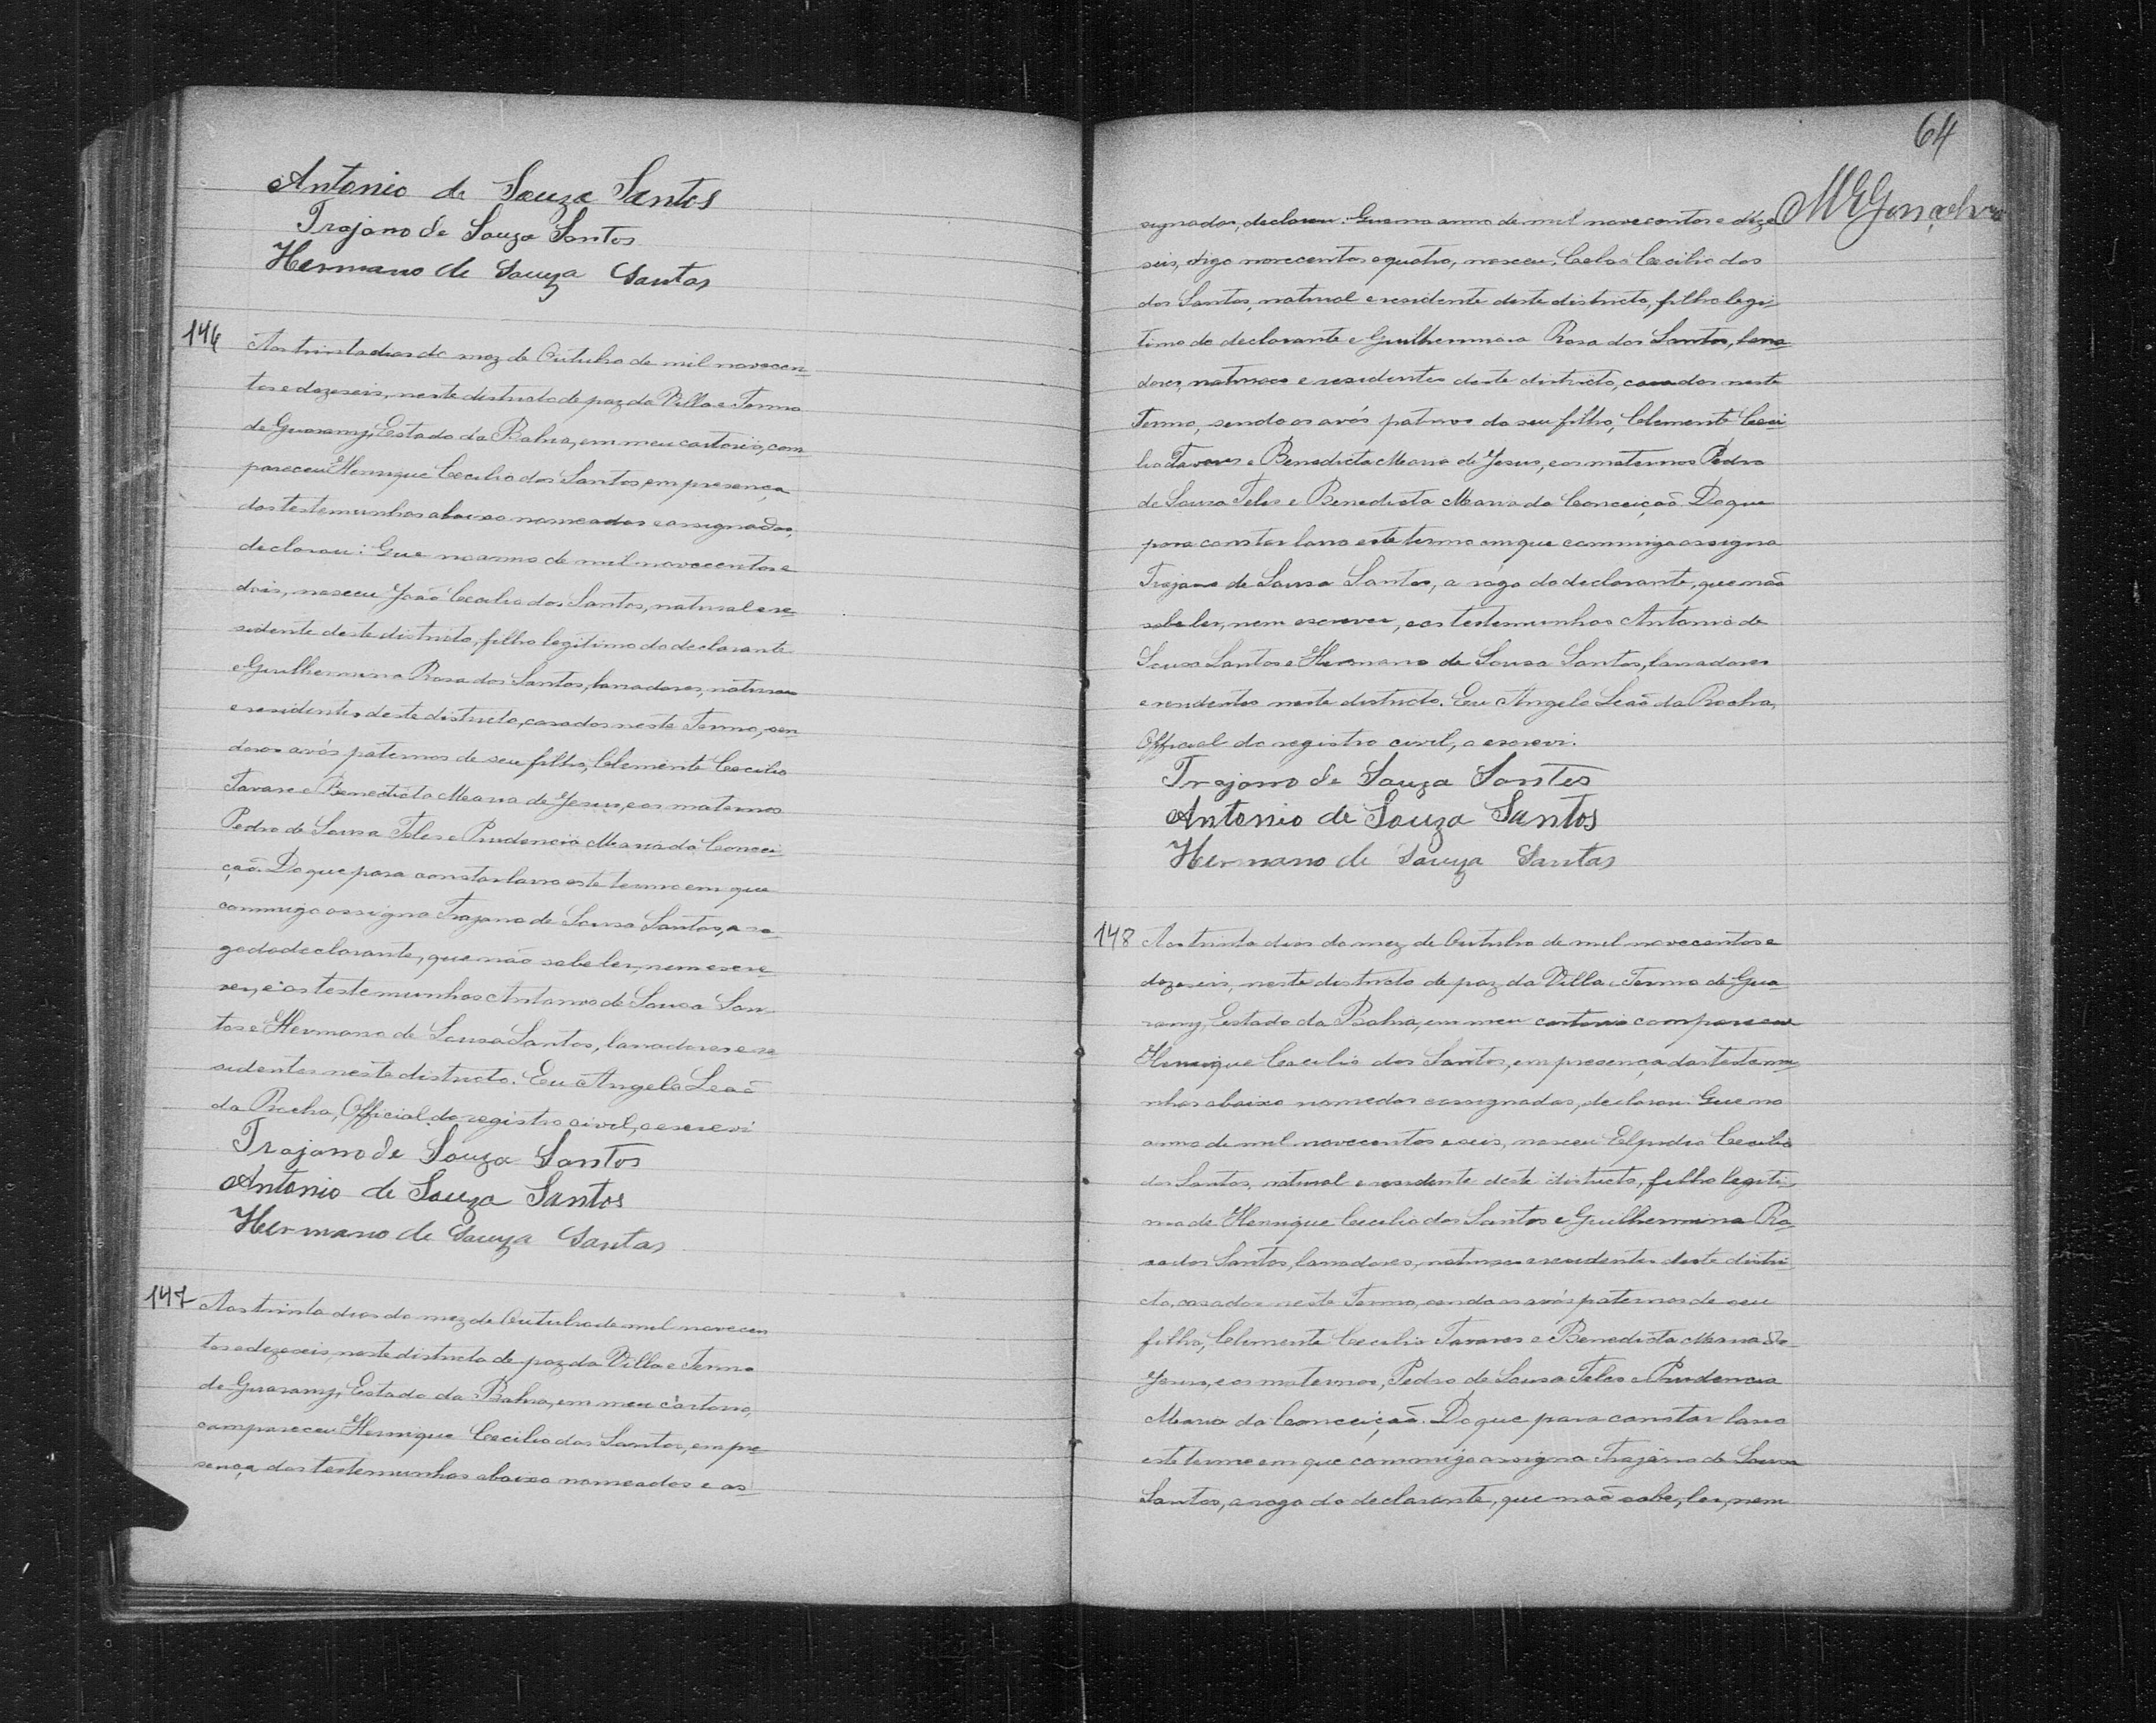 Antonio de Souza Santos
Trajano de Souza Santos
Hermano de Souza Santos
146
Aos trinta dias do mez de Outubro de mil novecen-
tos e dezeseis, neste districto de paz da Villa e Termo
de Guarany, Estado da Bahia, em meu cartorio, com
pareceu Henrique Cecilio dos Santos, em presença
das testemunhas abaixo nomeadas e assignadas,
declarou: Que no anno de mil novecentos e
dois, nasceu João Cecilio dos Santos, natural e re-
sidente deste districto, filho legitimo do declarante
e Guilhermina Rosa dos Santos, lavradores, naturaes
e residentes deste districto, casados neste Termo, sen-
do os avós paternos de seu filho, Clemente Cecilio
Tavares e Benedicta Maria de Jesus, e os maternos
Pedro de Sousa Teles e Prudencia Maria da Concei-
ção. Do que para constar lavro este termo em que
commigo assigna Trajano de Sousa Santos, a ro-
go do declarante, que não sabe ler, nem escre-
ver, e as testemunhas Antonio de Sousa San-
tos e Hermano de Sousa Santos, lavradores e re-
sidentes neste districto. Eu Angelo Leão
da Rocha, Official do registro civil, o escrevi
Trajano de Souza Santos
Antonio de Souza Santos
Hermano de Souza Santos
147
Aos trinta dias do mez de Outubro de mil novecen
tos e dezeseis, neste districto de paz da Villa e Termo
de Guarany, Estado da Bahia, em meu cartorio,
compareceu Henrique Cecilio dos Santos, em pre-
sença das testemunhas abaixo nomeadas e as-
64
MEGonçalves
signadas, declarou: Que no anno de mil novecentos e deze
seis, digo novecentos e quatro, nasceu, Celso Cecilio dos
dos Santos, natural e residente deste districto, filho legi-
timo do declarante e Guilhermina Rosa dos Santos, lavra
dores, naturaes e residentes deste districto, casados neste
Termo, sendo os avós paternos do seu filho, Clemente Ceci
lio Tavares e Benedicta Maria de Jesus, e os maternos Pedro
de Sousa Teles e Benedicta Maria da Conceição. Do que
para constar lavro este termo em que commigo assigna
Trajano de Sousa Santos, a rogo do declarante, que não
sabe ler, nem escrever, e as testemunhas Antonio de
Sousa Santos e Hermano de Sousa Santos, lavradores
e residentes neste districto. Eu Angelo Leão da Rocha,
Official do registro civil, o escrevi.
Trajano de Souza Santos
Antonio de Souza Santos
Hermano de Souza Santos
148
Aos trinta dias do mez de Outubro de mil novecentos e
dezeseis, neste districto de paz da Villa e Termo de Gua
rany, Estado da Bahia, em meu cartorio compareceu
Henrique Cecilio dos Santos, em presença das testemu
nhas abaixo nomedas e assignadas, declarou: Que no
anno de mil novecentos e seis, nasceu Elpidio Cecilio
dos Santos, natural e residente deste districto, filho legiti-
mo de Henrique Cecilio dos Santos e Guilhermina Ro-
sa dos Santos, lavradores, naturaes e residentes deste distri-
cto, casados neste Termo, sendo os avós paternos de seu
filho, Clemente Cecilio Tavares e Benedicta Maria de
Jesus, e os maternos, Pedro de Sousa Teles e Prudencia
Maria da Conceição. Do que para constar lavro
este termo em que commigo assigna Trajano de Sousa
Santos, a rogo do declarante, que não sabe, ler, nem